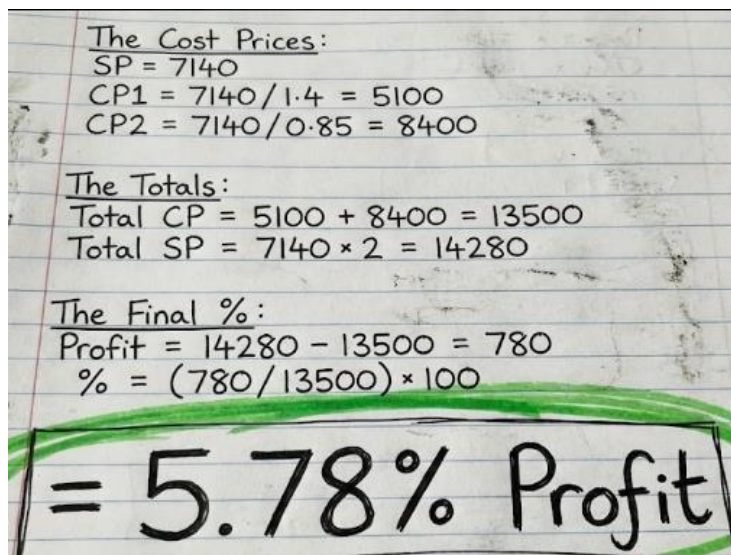 The Cost Prices:
SP = 7140
CP1 = 7140/1.4 = 5100
CP2 = 7140/0.85 = 8400
The Totals:
Total CP = 5100 + 8400 = 13500
Total SP = 7140 × 2 = 14280
The Final %:
Profit = 14280 - 13500 = 780
% = (780/13500) × 100
= 5.78% Profit